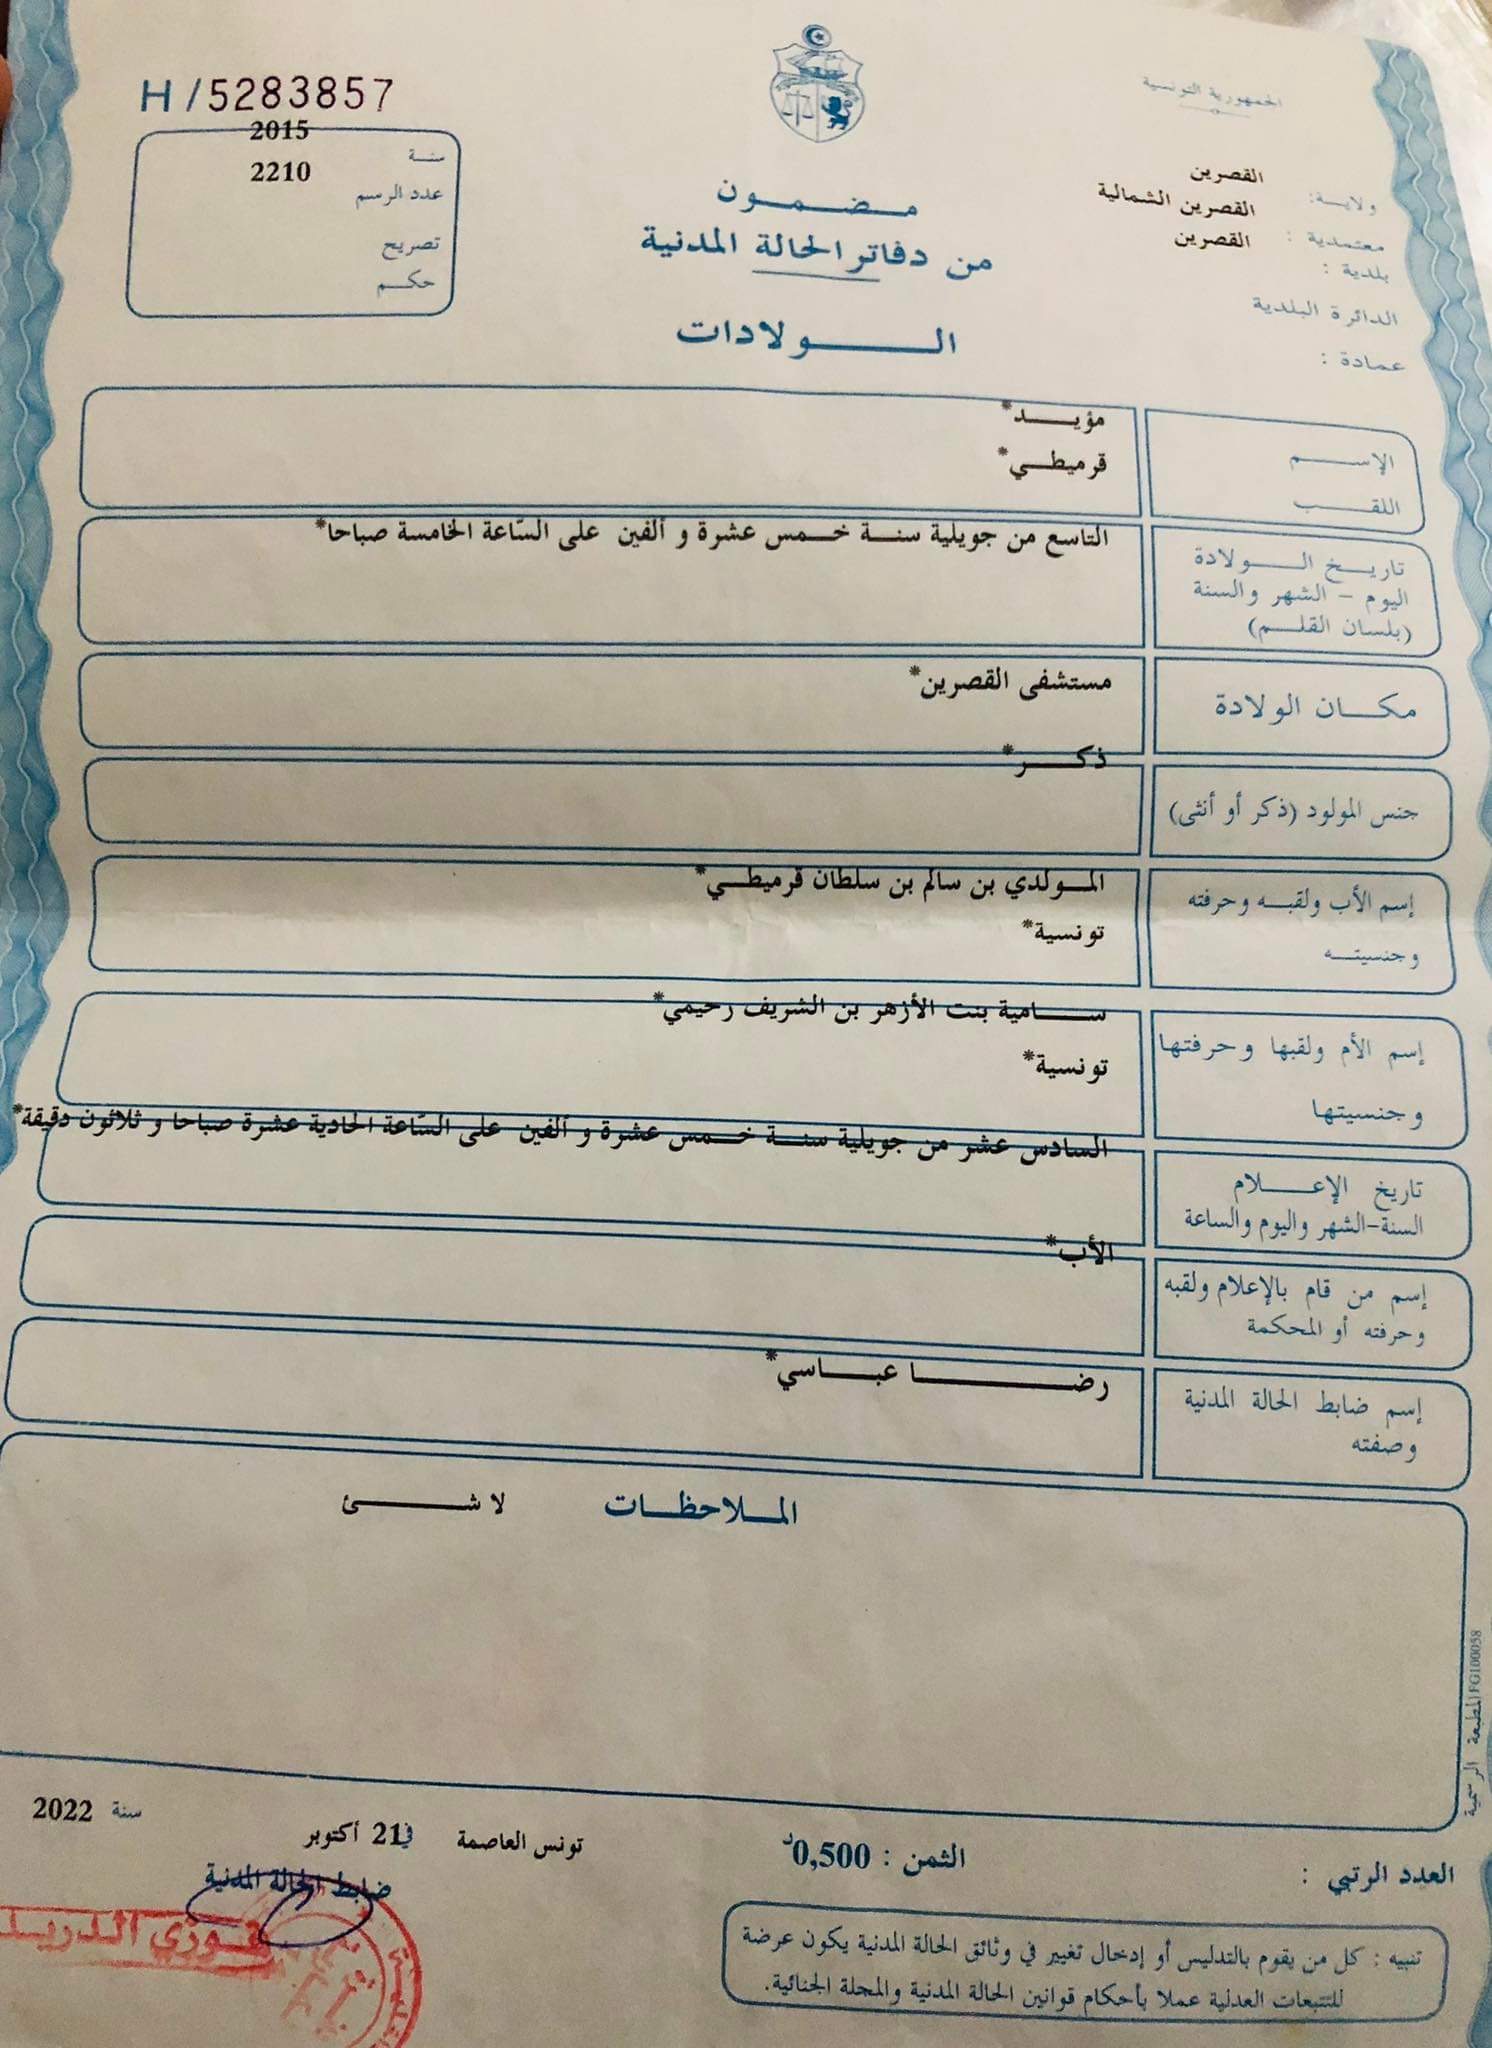 الجمهورية التونسية
H/5283857
سنة 2015
عدد الرسم 2210
تصريح
حكم
مضمون
من دفاتر الحالة المدنية
الولادات
ولاية: القصرين
معتمدية: القصرين الشمالية
بلدية: القصرين
الدائرة البلدية
عمادة:
الإسم مؤيد*
اللقب قرميطي*
تاريخ الولادة
اليوم - الشهر والسنة
(بلسان القلم)
التاسع من جويلية سنة خمس عشرة و ألفين على السّاعة الخامسة صباحا*
مكان الولادة
مستشفى القصرين*
جنس المولود (ذكر أو أنثى)
ذكر*
إسم الأب ولقبه وحرفته
وجنسيته
المولدي بن سالم بن سلطان قرميطي*
تونسية*
إسم الأم ولقبها وحرفتها
وجنسيتها
سامية بنت الأزهر بن الشريف رحيمي*
تونسية*
تاريخ الإعلام
السنة-الشهر واليوم والساعة
السادس عشر من جويلية سنة خمس عشرة و ألفين على السّاعة الحادية عشرة صباحا و ثلاثون دقيقة*
إسم من قام بالإعلام ولقبه
وحرفته أو المحكمة
الأب*
إسم ضابط الحالة المدنية
وصفته
رضا عباسي*
الملاحظات لا شئ
المطبعة الرسمية FG100058
العدد الرتبي :
الثمن : 0,500د
تونس العاصمة في 21 أكتوبر سنة 2022
ضابط الحالة المدنية
فوزي
تنبيه : كل من يقوم بالتدليس أو إدخال تغيير في وثائق الحالة المدنية يكون عرضة
للتتبعات العدلية عملا بأحكام قوانين الحالة المدنية والمجلة الجنائية.